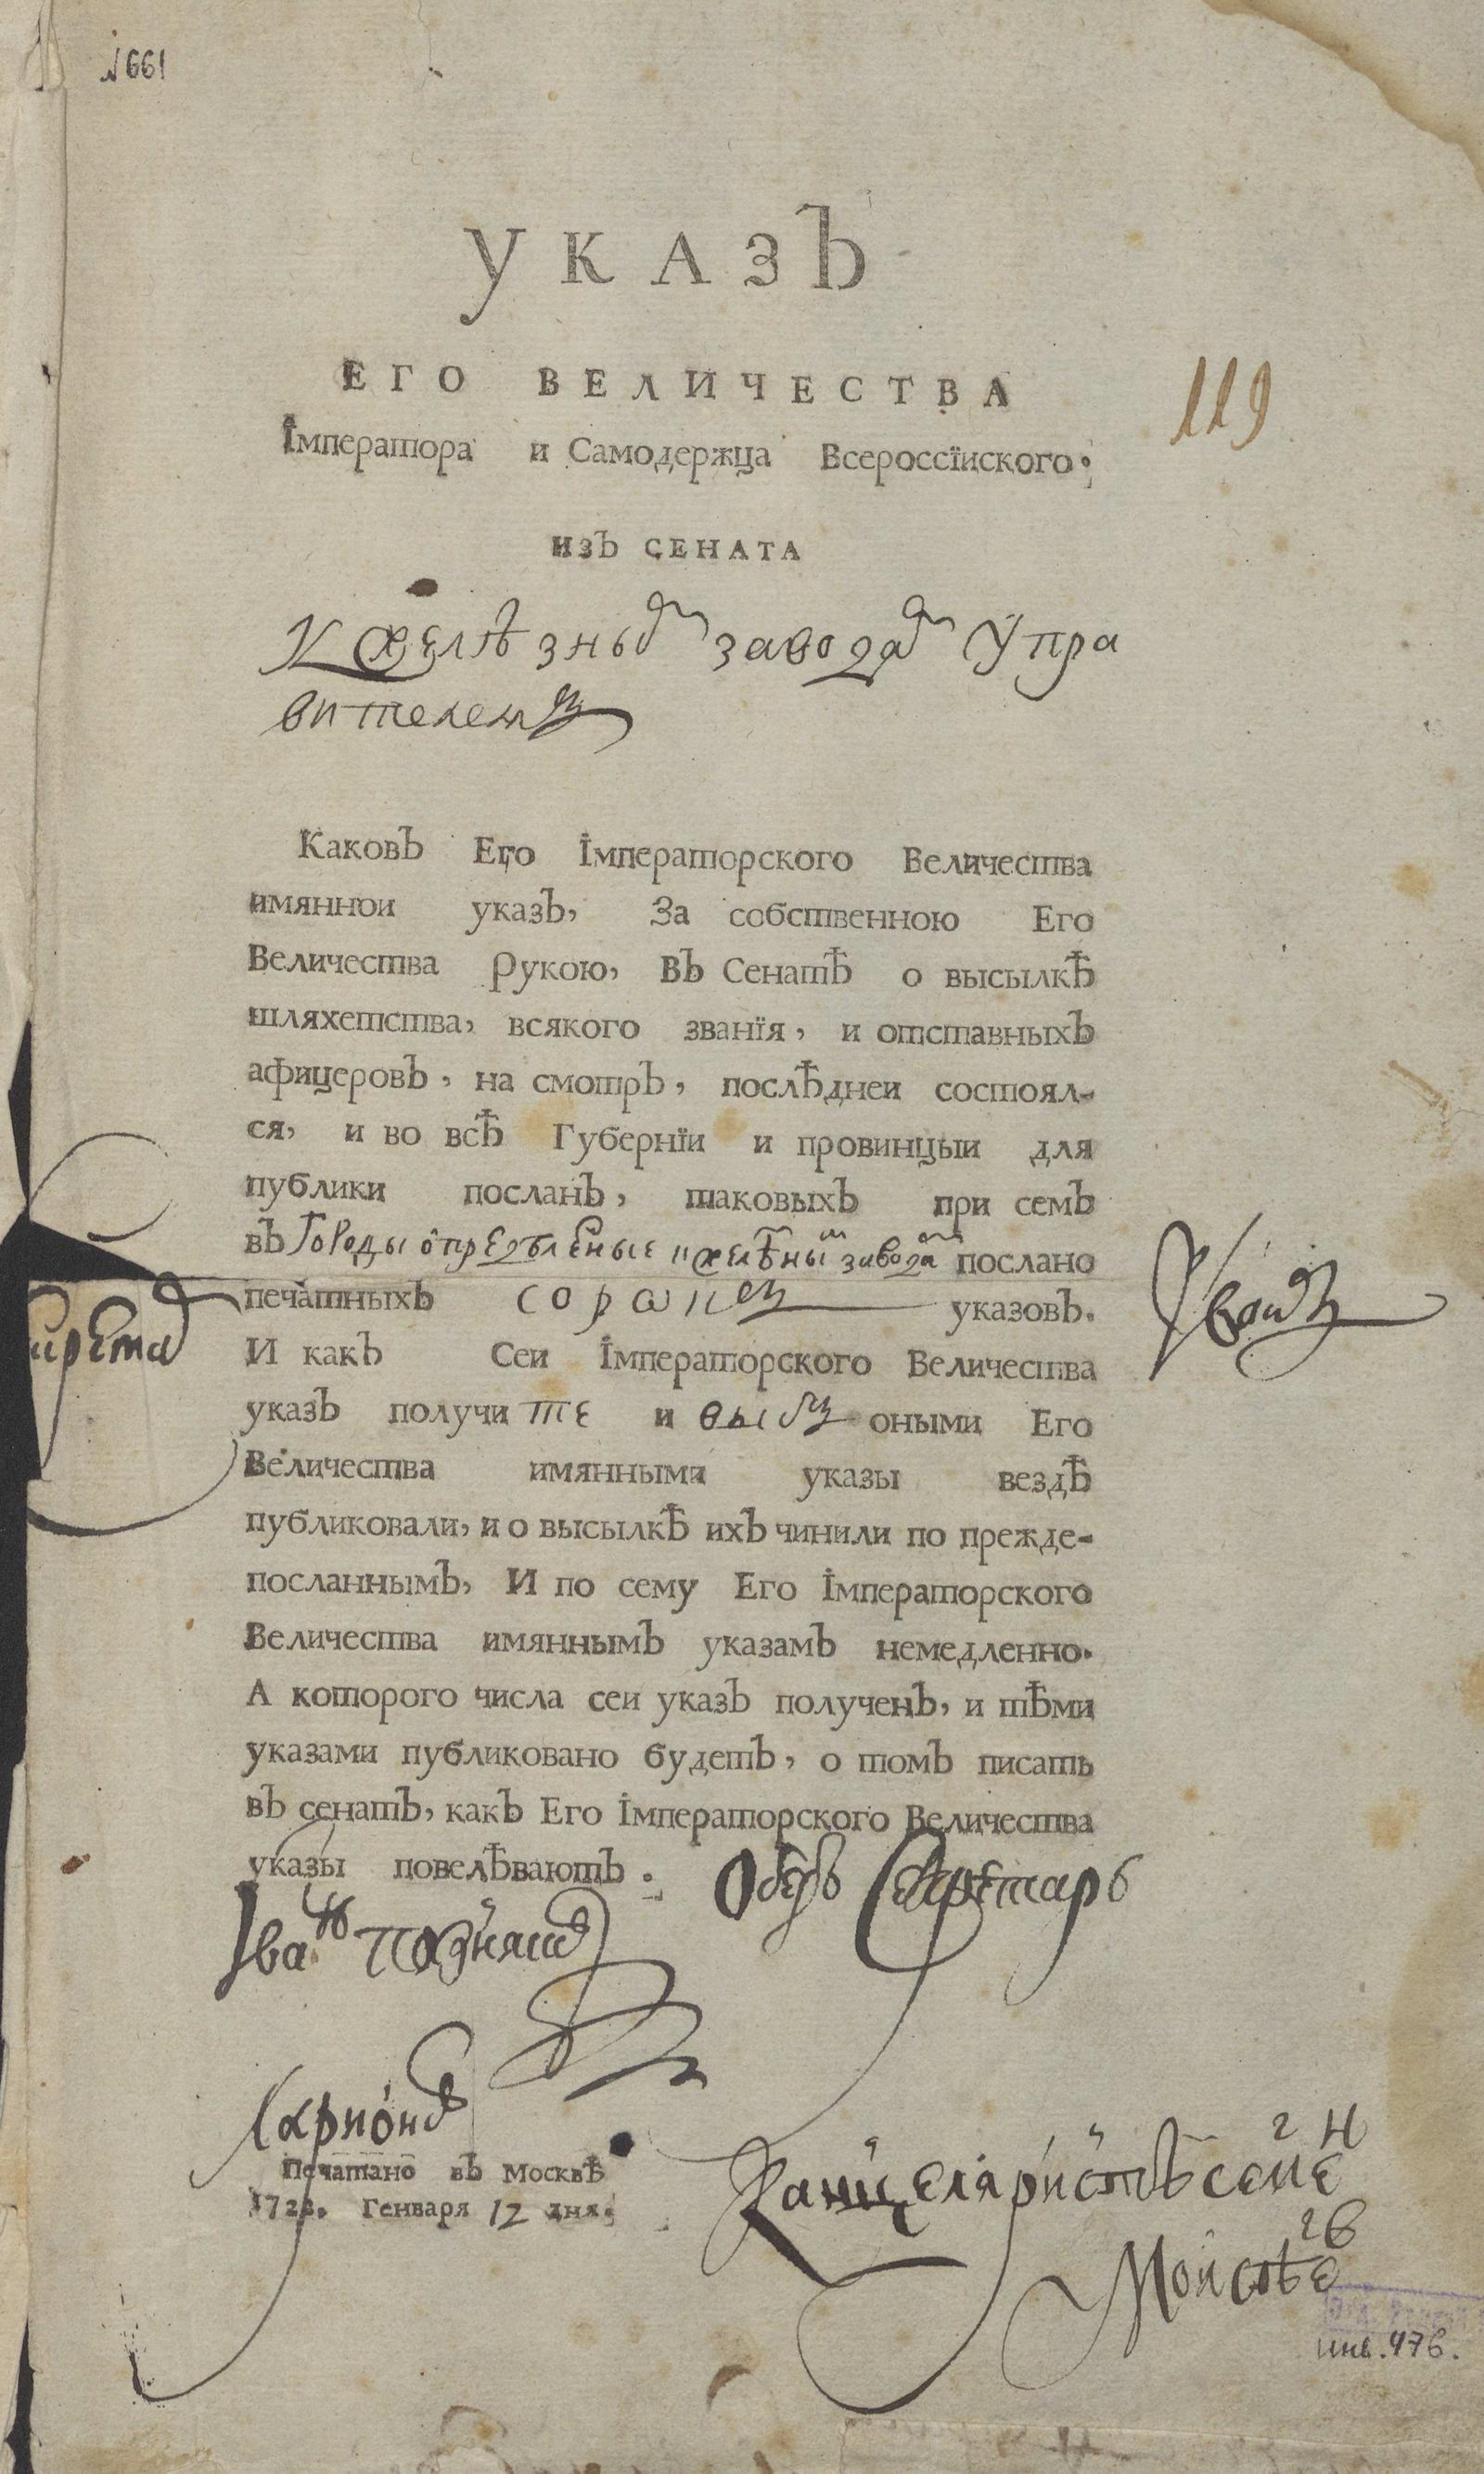 661
УКАЗЪ
ЕГО ВЕЛИЧЕСТВА
119
Імператора и Самодержца Всероссїиского.
ИЗЪ СЕНАТА
К желѣзнымъ заводамъ Упра
вителемъ
Каковъ Его Імператорского Величества
имяннои указъ, За собственною Его
Величества рукою, въ Сенатѣ о высылкѣ
шляхетства, всякого званїя, и отставныхъ
афицеровъ, на смотръ, послѣднеи состоял-
ся, и во всѣ Губернїи и провинцыи для
публики посланъ, таковыхъ при семъ
въ Городы послано
печатныхъ сорокъ указовъ.
И какъ Сеи Імператорского Величества
указъ получите и выбъ оными Его
Величества имянными указы вездѣ
публиковали, и о высылкѣ ихъ чинили по прежде-
посланнымъ, И по сему Его Імператорского
Величества имяннымъ указамъ немедленно.
А которого числа сеи указъ полученъ, и тѣми
указами публиковано будетъ, о томъ писать
въ сенатъ, какъ Его Імператорского Величества
указы повелѣваютъ. Оберъ Секретарь
Іванъ Позняков
Ларионъ
Печатано въ Москвѣ
Генваря 12 дня.
Канцеляристъ Семен
инв. 476.